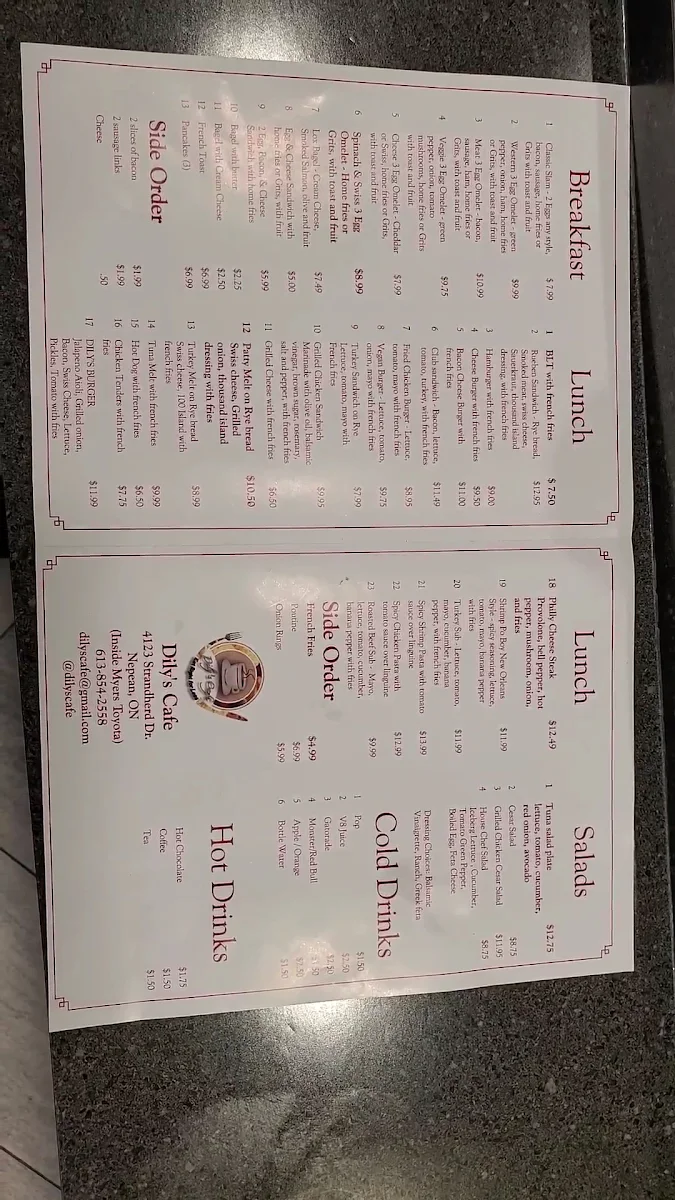 Breakfast
1 Classic Slam - 2 Eggs any style, $7.99
bacon, sausage, home fries or
Grits with toast and fruit
2 Western 3 Egg Omelet - green $9.99
pepper, onion, ham, home fries
or Grits, with toast and fruit
3 Meat 3 Egg Omelet - bacon, $10.99
sausage, ham, home fries or
Grits, with toast and fruit
4 Veggie 3 Egg Omelet - green $9.75
pepper, onion, tomato
mushrooms, home fries or Grits
with toast and fruit
5 Cheese 3 Egg Omelet - Cheddar $7.99
or Swiss, home fries or Grits,
with toast and fruit
6 Spinach & Swiss 3 Egg $8.99
Omelet - Home fries or
Grits, with toast and fruit
7 Lox Bagel - Cream Cheese, $7.49
Smoked Salmon, olive and fruit
8 Egg & Cheese Sandwich with $5.00
home fries or Grits, with fruit
9 2 Egg, Bacon, & Cheese $5.99
Sandwich, with home fries
10 Bagel with butter $2.25
11 Bagel with Cream Cheese $2.50
12 French Toast $6.99
13 Pancakes (3) $6.99
Side Order
2 slices of bacon $1.99
2 sausage links $1.99
Cheese .50
Lunch
1 BLT with french fries $7.50
2 Rueben Sandwich - Rye bread, $12.95
Smoked meat, swiss cheese,
Sauerkraut, thousand island
dressing, with french fries
3 Hamburger with french fries $9.00
4 Cheese Burger with french fries $9.50
5 Bacon Cheese Burger with $11.00
french fries
6 Club sandwich - Bacon, lettuce, $11.49
tomato, turkey, with french fries
7 Fried Chicken Burger - Lettuce, $8.95
tomato, mayo with french fries
8 Vegan Burger - Lettuce, tomato, $9.75
onion, mayo with french fries
9 Turkey Sandwich on Rye $7.99
Lettuce, tomato, mayo with
French fries
10 Grilled Chicken Sandwich $9.95
Marinade with olive oil, balsamic
vinegar, brown sugar, rosemary,
salt and pepper, with french fries
11 Grilled Cheese with french fries $6.50
12 Patty Melt on Rye bread $10.50
Swiss cheese, Grilled
onion, thousand island
dressing with fries
13 Turkey Melt on Rye bread $8.99
Swiss cheese, 100 Island with
french fries
14 Tuna Melt with french fries $9.99
15 Hot Dog with french fries $6.50
16 Chicken Tenders with french $7.75
fries
17 DILYS BURGER $11.99
Jalapeno Aioli, Grilled onion,
Bacon, Swiss Cheese, Lettuce,
Pickles, Tomato with fries
Lunch
18 Philly Cheese Steak $12.49
Provolone, bell pepper, hot
pepper, mushroom, onion,
and fries
19 Shrimp Po Boy New Orleans $11.99
Style - spicy seasoning, lettuce,
tomato, mayo, banana pepper
with fries
20 Turkey Sub - Lettuce, tomato, $11.99
mayo, cucumber, banana
pepper, with french fries
21 Spicy Shrimp Pasta with tomato $13.99
sauce over linguine
22 Spicy Chicken Pasta with $12.99
tomato sauce over linguine
23 Roasted Beef Sub - Mayo, $9.99
lettuce, tomato, cucumber,
banana pepper with fries
Side Order
French Fries $4.99
Poutine $6.99
Onion Rings $5.99
Dily's Cafe
4123 Strandherd Dr.
Nepean, ON
(Inside Myers Toyota)
613-854-2558
dilyscafe@gmail.com
@dilyscafe
Salads
1 Tuna salad plate $12.75
lettuce, tomato, cucumber,
red onion, avocado
2 Cesar Salad $8.75
3 Grilled Chicken Cesar Salad $11.95
4 House Chef Salad $8.75
Iceberg Lettuce, Cucumber,
Tomato Green Pepper,
Boiled Egg, Feta Cheese
Dressing Choices: Balsamic
Vinaigrette, Ranch, Greek feta
Cold Drinks
1 Pop $1.50
2 V8 Juice $2.50
3 Gatorade $2.50
4 Monster/Red Bull
5 Apple / Orange
6 Bottle Water $1.50
Hot Drinks
Hot Chocolate $1.75
Coffee $1.50
Tea $1.50